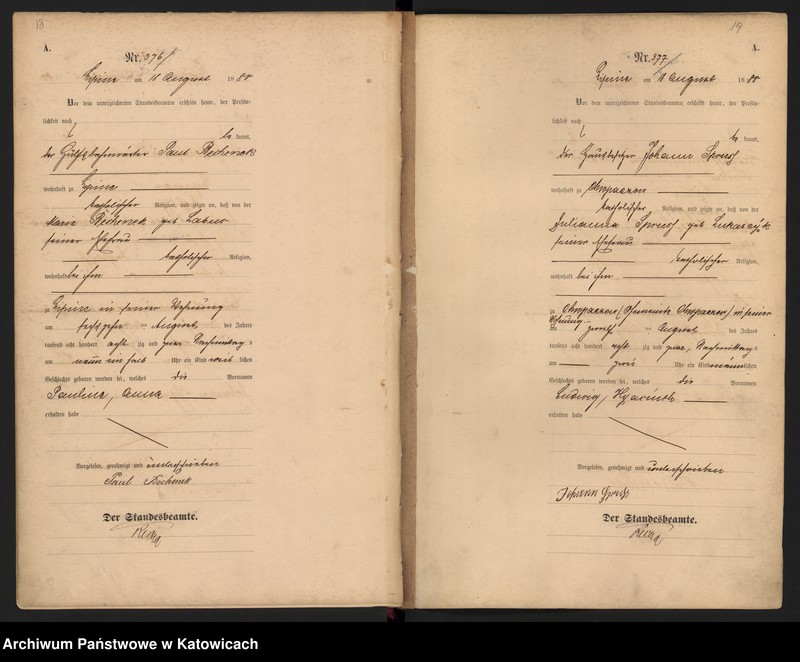 18
A.
Nr. 376
Lipine am 11 August 1880
Vor dem unterzeichneten Standesbeamten erschien heute, der Persön-
lichkeit nach
be kannt,
der Paul Bochenek
wohnhaft zu Lipine
katholischer Religion, und zeigte an, daß von der
Marie Bochenek geb
seiner Ehefrau
katholischer Religion,
wohnhaft bei ihm
zu Lipine in seiner Wohnung
am August des Jahres
tausend acht hundert acht zig und Nachmittag s
um neun ein halb Uhr ein Kind weib lichen
Geschlechts geboren worden sei, welches die Vornamen
Pauline, Anna
erhalten habe
Vorgelesen, genehmigt und unterschrieben
Paul Bochenek
Der Standesbeamte.
19
A.
Nr. 377
Lipine am 11 August 1880
Vor dem unterzeichneten Standesbeamten erschien heute, der Persön-
lichkeit nach
be kannt,
der Johann
wohnhaft zu Chropaczow
katholischer Religion, und zeigte an, daß von der
Julianna geb
seiner Ehefrau
katholischer Religion,
wohnhaft bei ihm
zu Chropaczow (Gemeinde Chropaczow) in seiner
Wohnung
am August des Jahres
tausend acht hundert acht zig und Nachmittag s
um Uhr ein Kind männ lichen
Geschlechts geboren worden sei, welches die Vornamen
Ludwig, Hyacinth
erhalten habe
Vorgelesen, genehmigt und unterschrieben
Johann
Der Standesbeamte.
Archiwum Państwowe w Katowicach